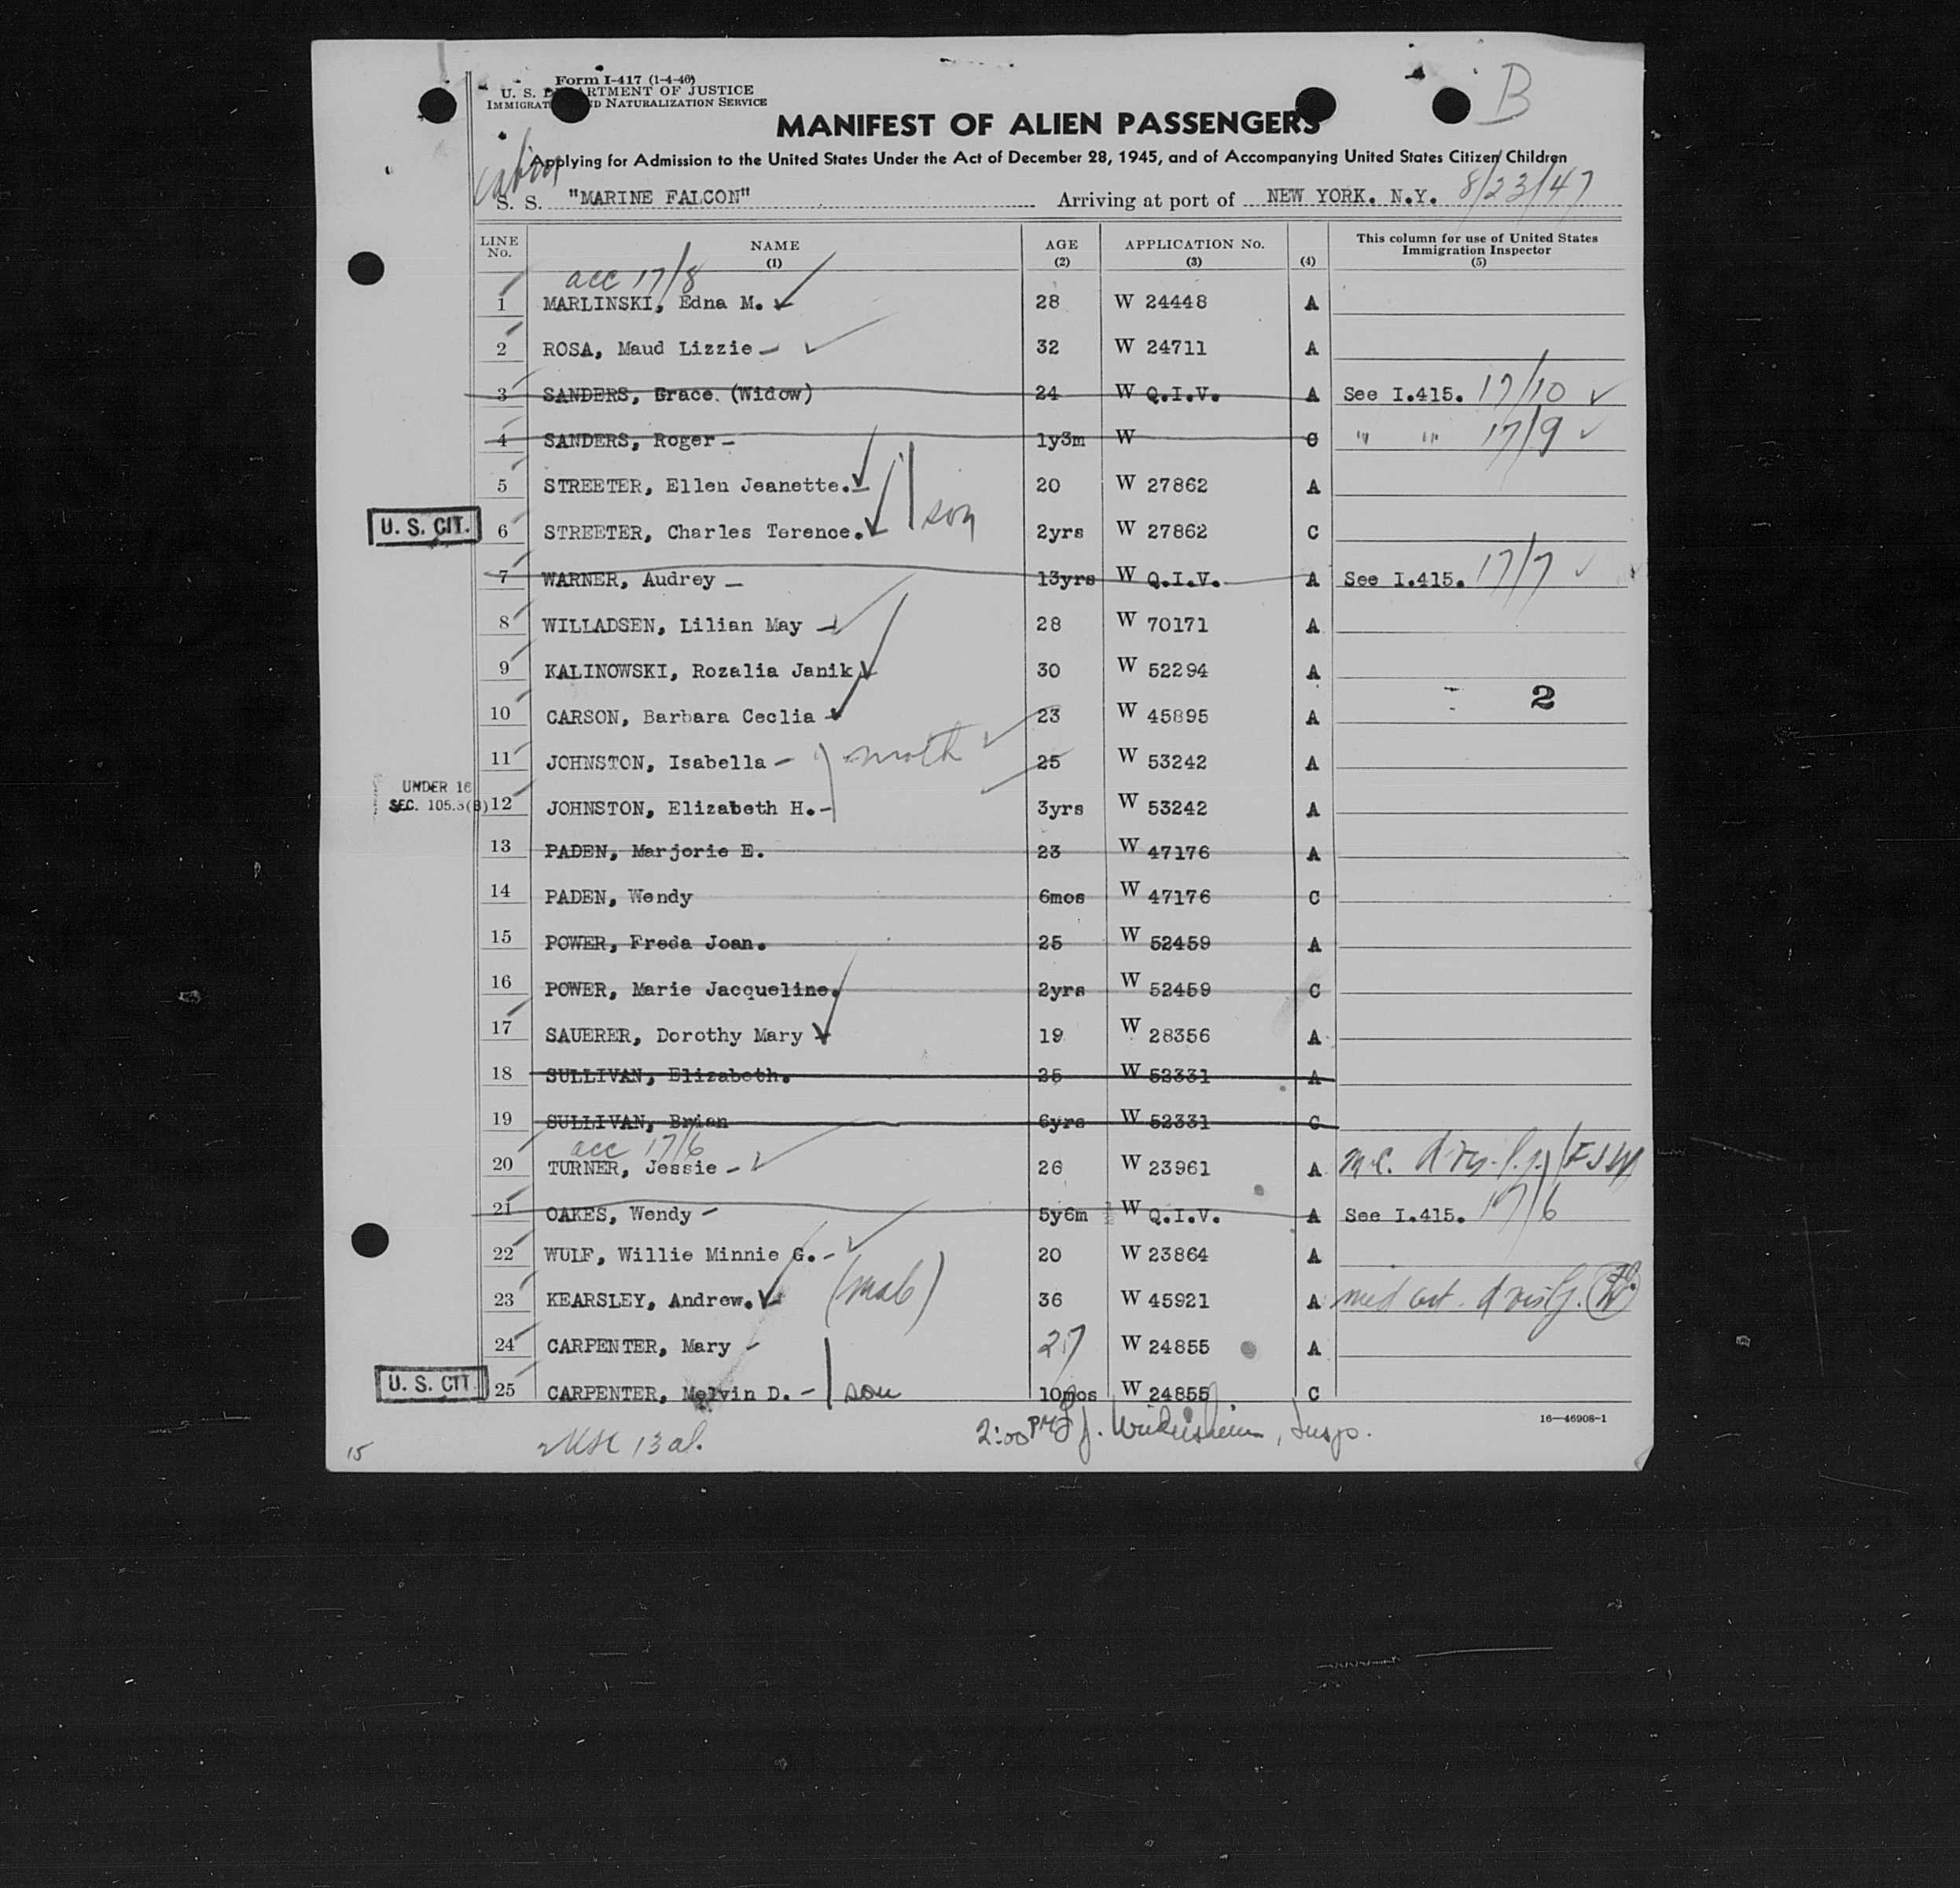 Form I-417 (1-4-46)
U. S. DEPARTMENT OF JUSTICE
IMMIGRATION AND NATURALIZATION SERVICE
B
MANIFEST OF ALIEN PASSENGERS
Applying for Admission to the United States Under the Act of December 28, 1945, and of Accompanying United States Citizen Children
S. S. "MARINE FALCON" Arriving at port of NEW YORK. N.Y. 8/23/47
LINE No. NAME (1) AGE (2) APPLICATION No. (3) (4) This column for use of United States Immigration Inspector (5)
acc 17/8
1 MARLINSKI, Edna M. 28 W 24448 A
2 ROSA, Maud Lizzie 32 W 24711 A
3 SANDERS, Grace. (Widow) 24 W Q.I.V. A See I.415. 17/10
4 SANDERS, Roger 1y3m W C " " 17/9
5 STREETER, Ellen Jeanette. 20 W 27862 A
U. S. CIT. 6 STREETER, Charles Terence. son 2yrs W 27862 C
7 WARNER, Audrey 13yrs W Q.I.V. A See I.415. 17/7
8 WILLADSEN, Lilian May 28 W 70171 A
9 KALINOWSKI, Rozalia Janik 30 W 52294 A
2
10 CARSON, Barbara Ceclia 23 W 45895 A
11 JOHNSTON, Isabella moth 25 W 53242 A
UNDER 16
SEC. 105.3(B) 12 JOHNSTON, Elizabeth H. 3yrs W 53242 A
13 PADEN, Marjorie E. 23 W 47176 A
14 PADEN, Wendy 6mos W 47176 C
15 POWER, Freda Joan. 25 W 52459 A
16 POWER, Marie Jacqueline. 2yrs W 52459 C
17 SAUERER, Dorothy Mary 19 W 28356 A
18 SULLIVAN, Elizabeth. 25 W 52331 A
19 SULLIVAN, Brian 6yrs W 52331 C
acc 17/6
20 TURNER, Jessie 26 W 23961 A
21 OAKES, Wendy 5y6m W Q.I.V. A See I.415. 17/6
22 WULF, Willie Minnie G. 20 W 23864 A
23 KEARSLEY, Andrew. 36 W 45921 A
24 CARPENTER, Mary 27 W 24855 A
U. S. CIT. 25 CARPENTER, Melvin D. son 10mos W 24855 C
16—46908-1
15 13 al. 2:00 PM